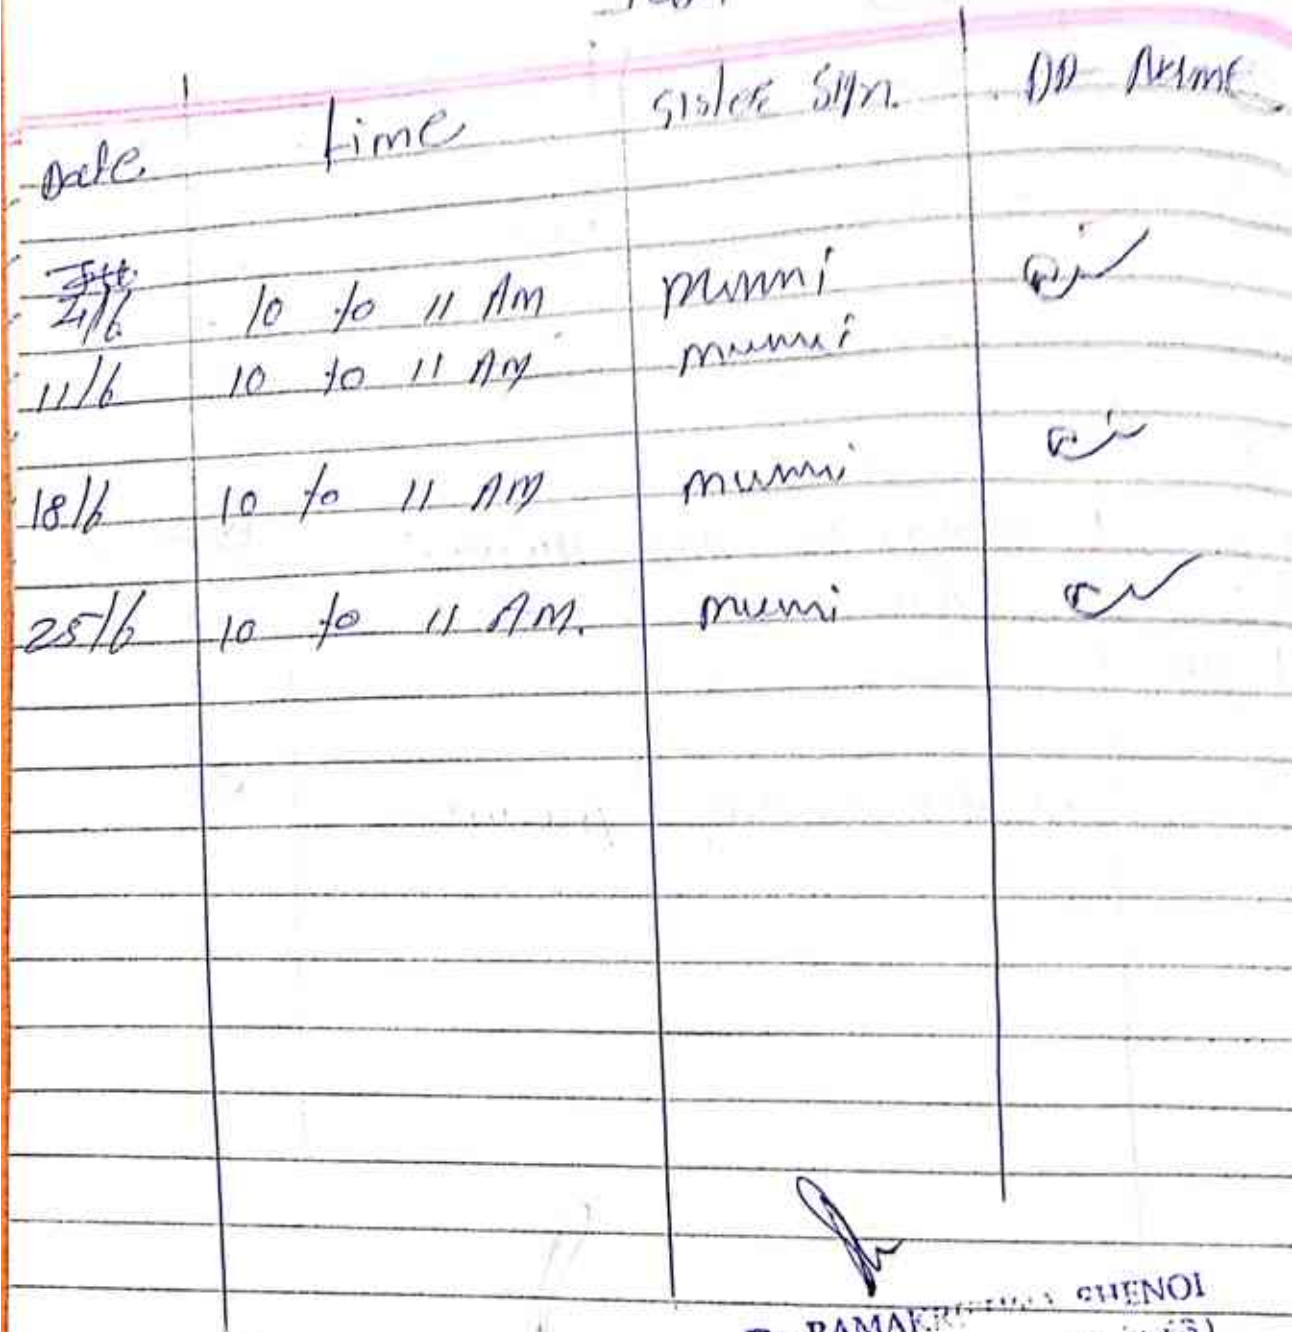 Date Time Sister Sign. DD Name
4/6 10 to 11 AM Munni
11/6 10 to 11 AM Munni
18/6 10 to 11 AM Munni
25/6 10 to 11 AM. Munni
SHENOI